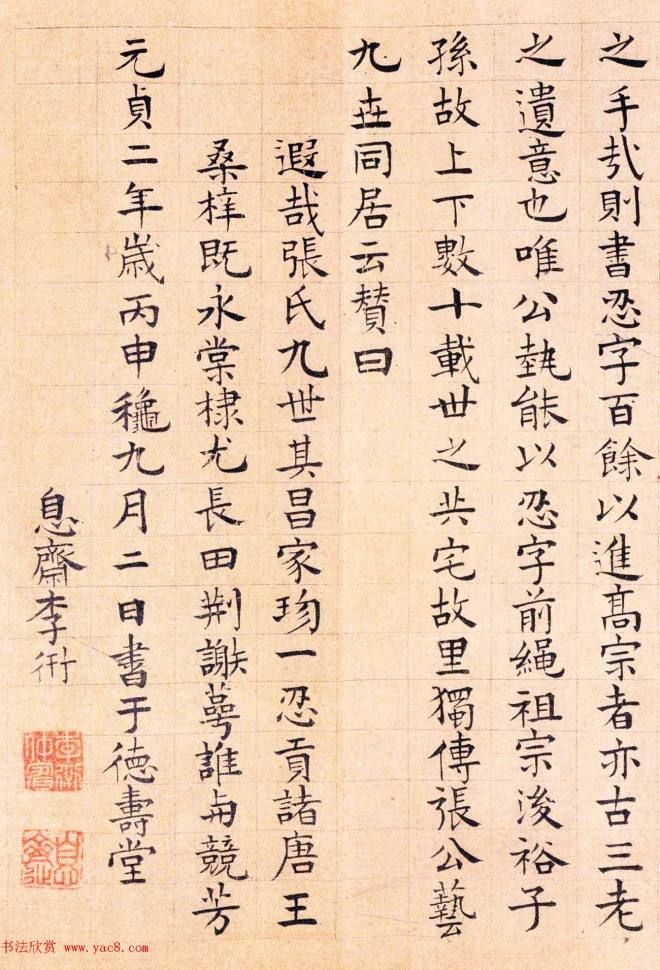 之手㢤則書忍字百餘以進高宗者亦古三老
之遺意也唯公執能以忍字前繩祖宗浚裕子
孫故上下數十載世之共宅故里獨傳張公藝
九世同居云贊曰
遐哉張氏九世其昌家珍一忍貢諸唐王
桑梓既永棠棣尤長田荆謝萼誰與競芳
元貞二年歲丙申穐九月二日書于德壽堂
息齋李衎
书法欣赏 www.yac8.com